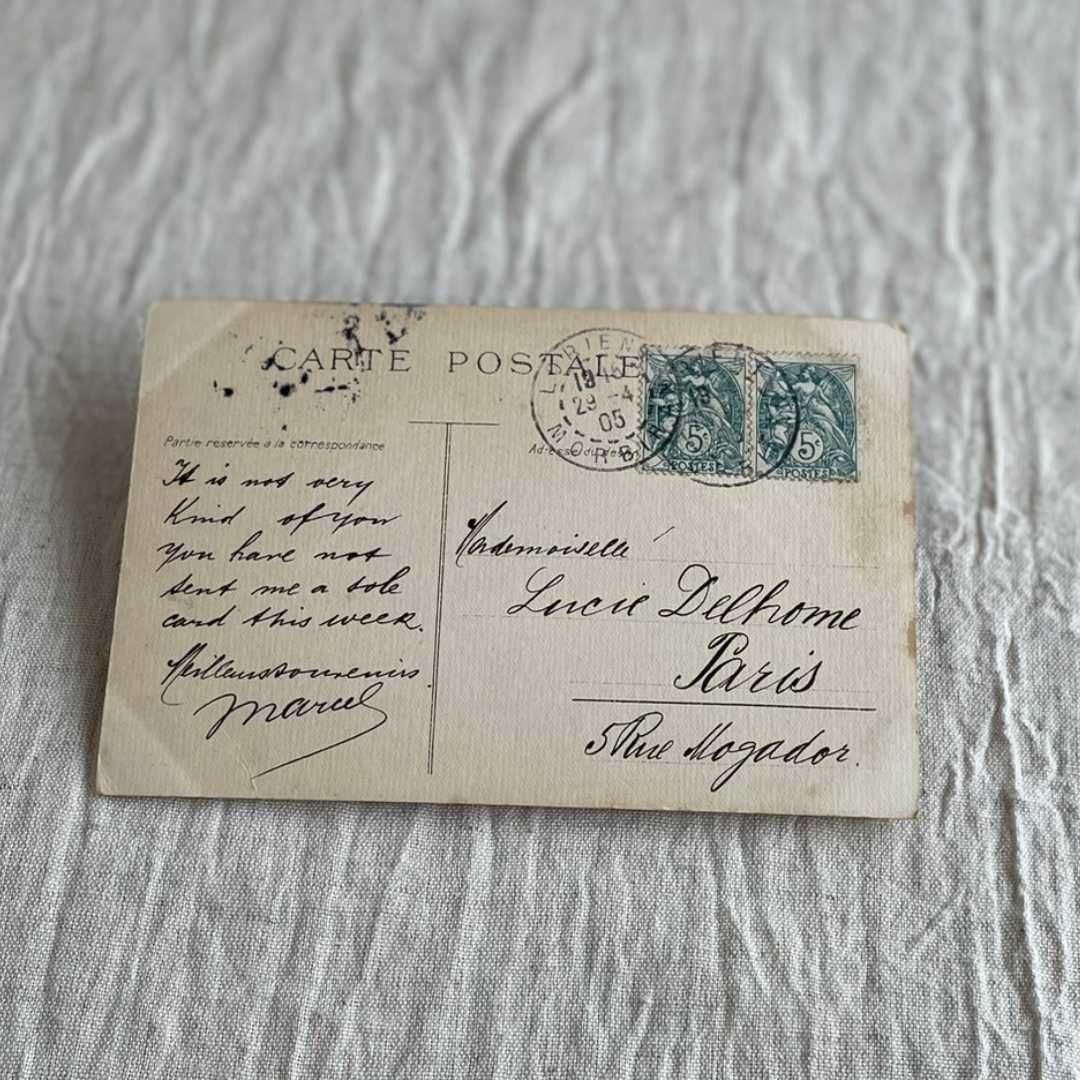 CARTE POSTALE
LORIENT
19 45
29 -4
05
MORBIHAN
5c
POSTES
5c
POSTES
Partie reservée à la correspondance
It is not very
Kind of you
you have not
sent me a sole
card this week.
Meilleurs souvenirs.
Marcel
Mademoiselle
Lucie Delhome
Paris
5 Rue Mogador.